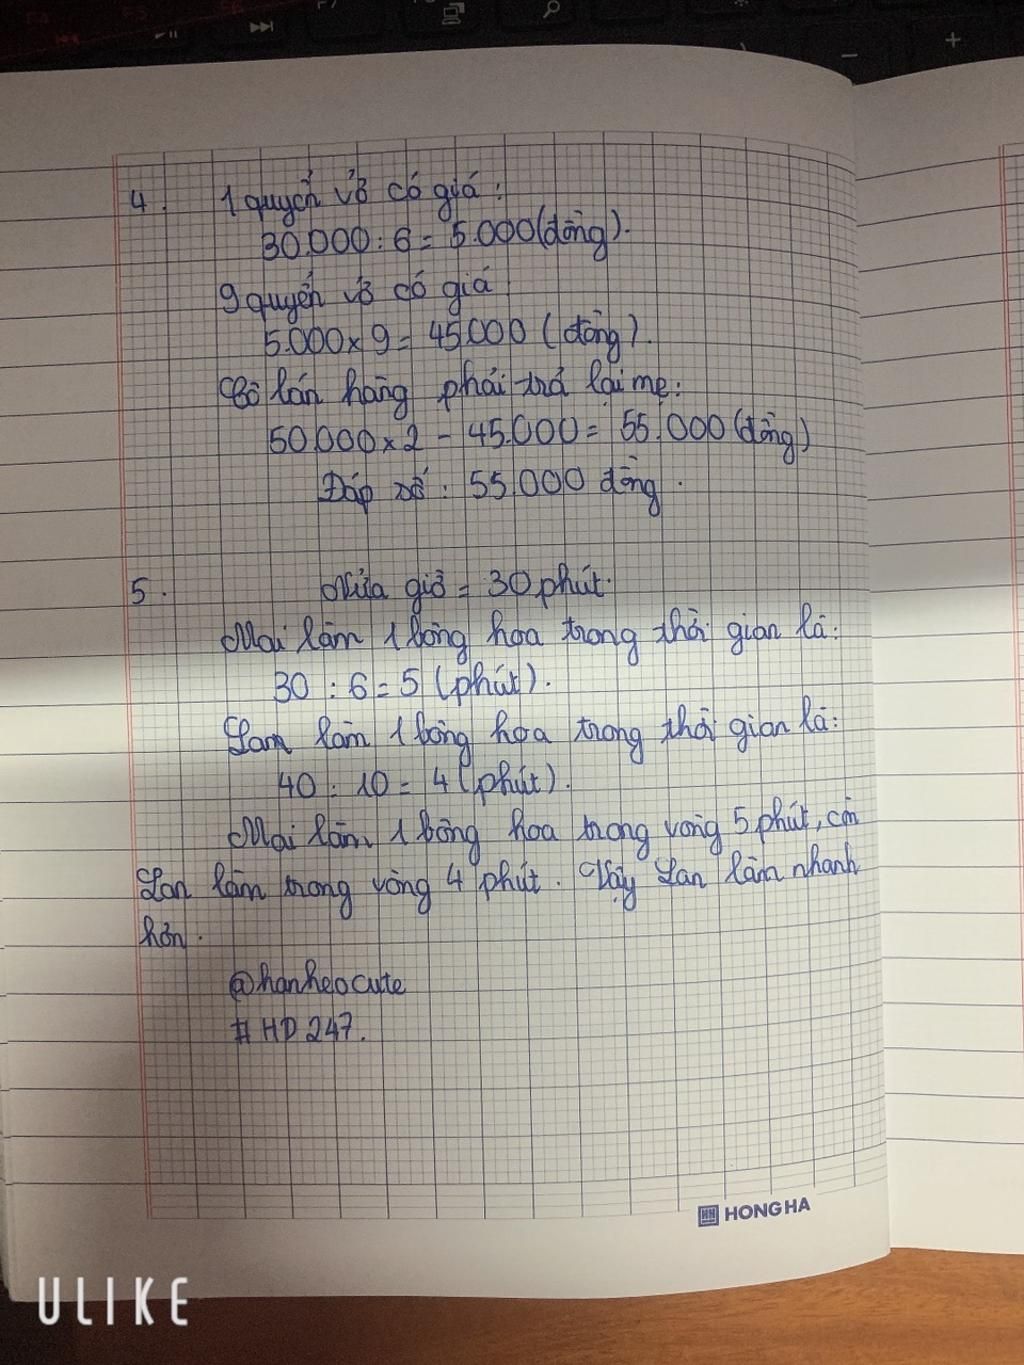 4. 1 quyển vở có giá:
30.000 : 6 = 5.000 (đồng).
9 quyển vở có giá
5.000 x 9 = 45.000 (đồng).
Cô bán hàng phải trả lại mẹ:
50.000 x 2 - 45.000 = 55.000 (đồng)
Đáp số: 55.000 đồng.
5. Nửa giờ = 30 phút.
Mai làm 1 bông hoa trong thời gian là:
30 : 6 = 5 (phút).
Lan làm 1 bông hoa trong thời gian là:
40 : 10 = 4 (phút).
Mai làm 1 bông hoa trong vòng 5 phút, còn
Lan làm trong vòng 4 phút. Vậy Lan làm nhanh
hơn.
@hanheocute
#HD247.
HONG HA
ULIKE